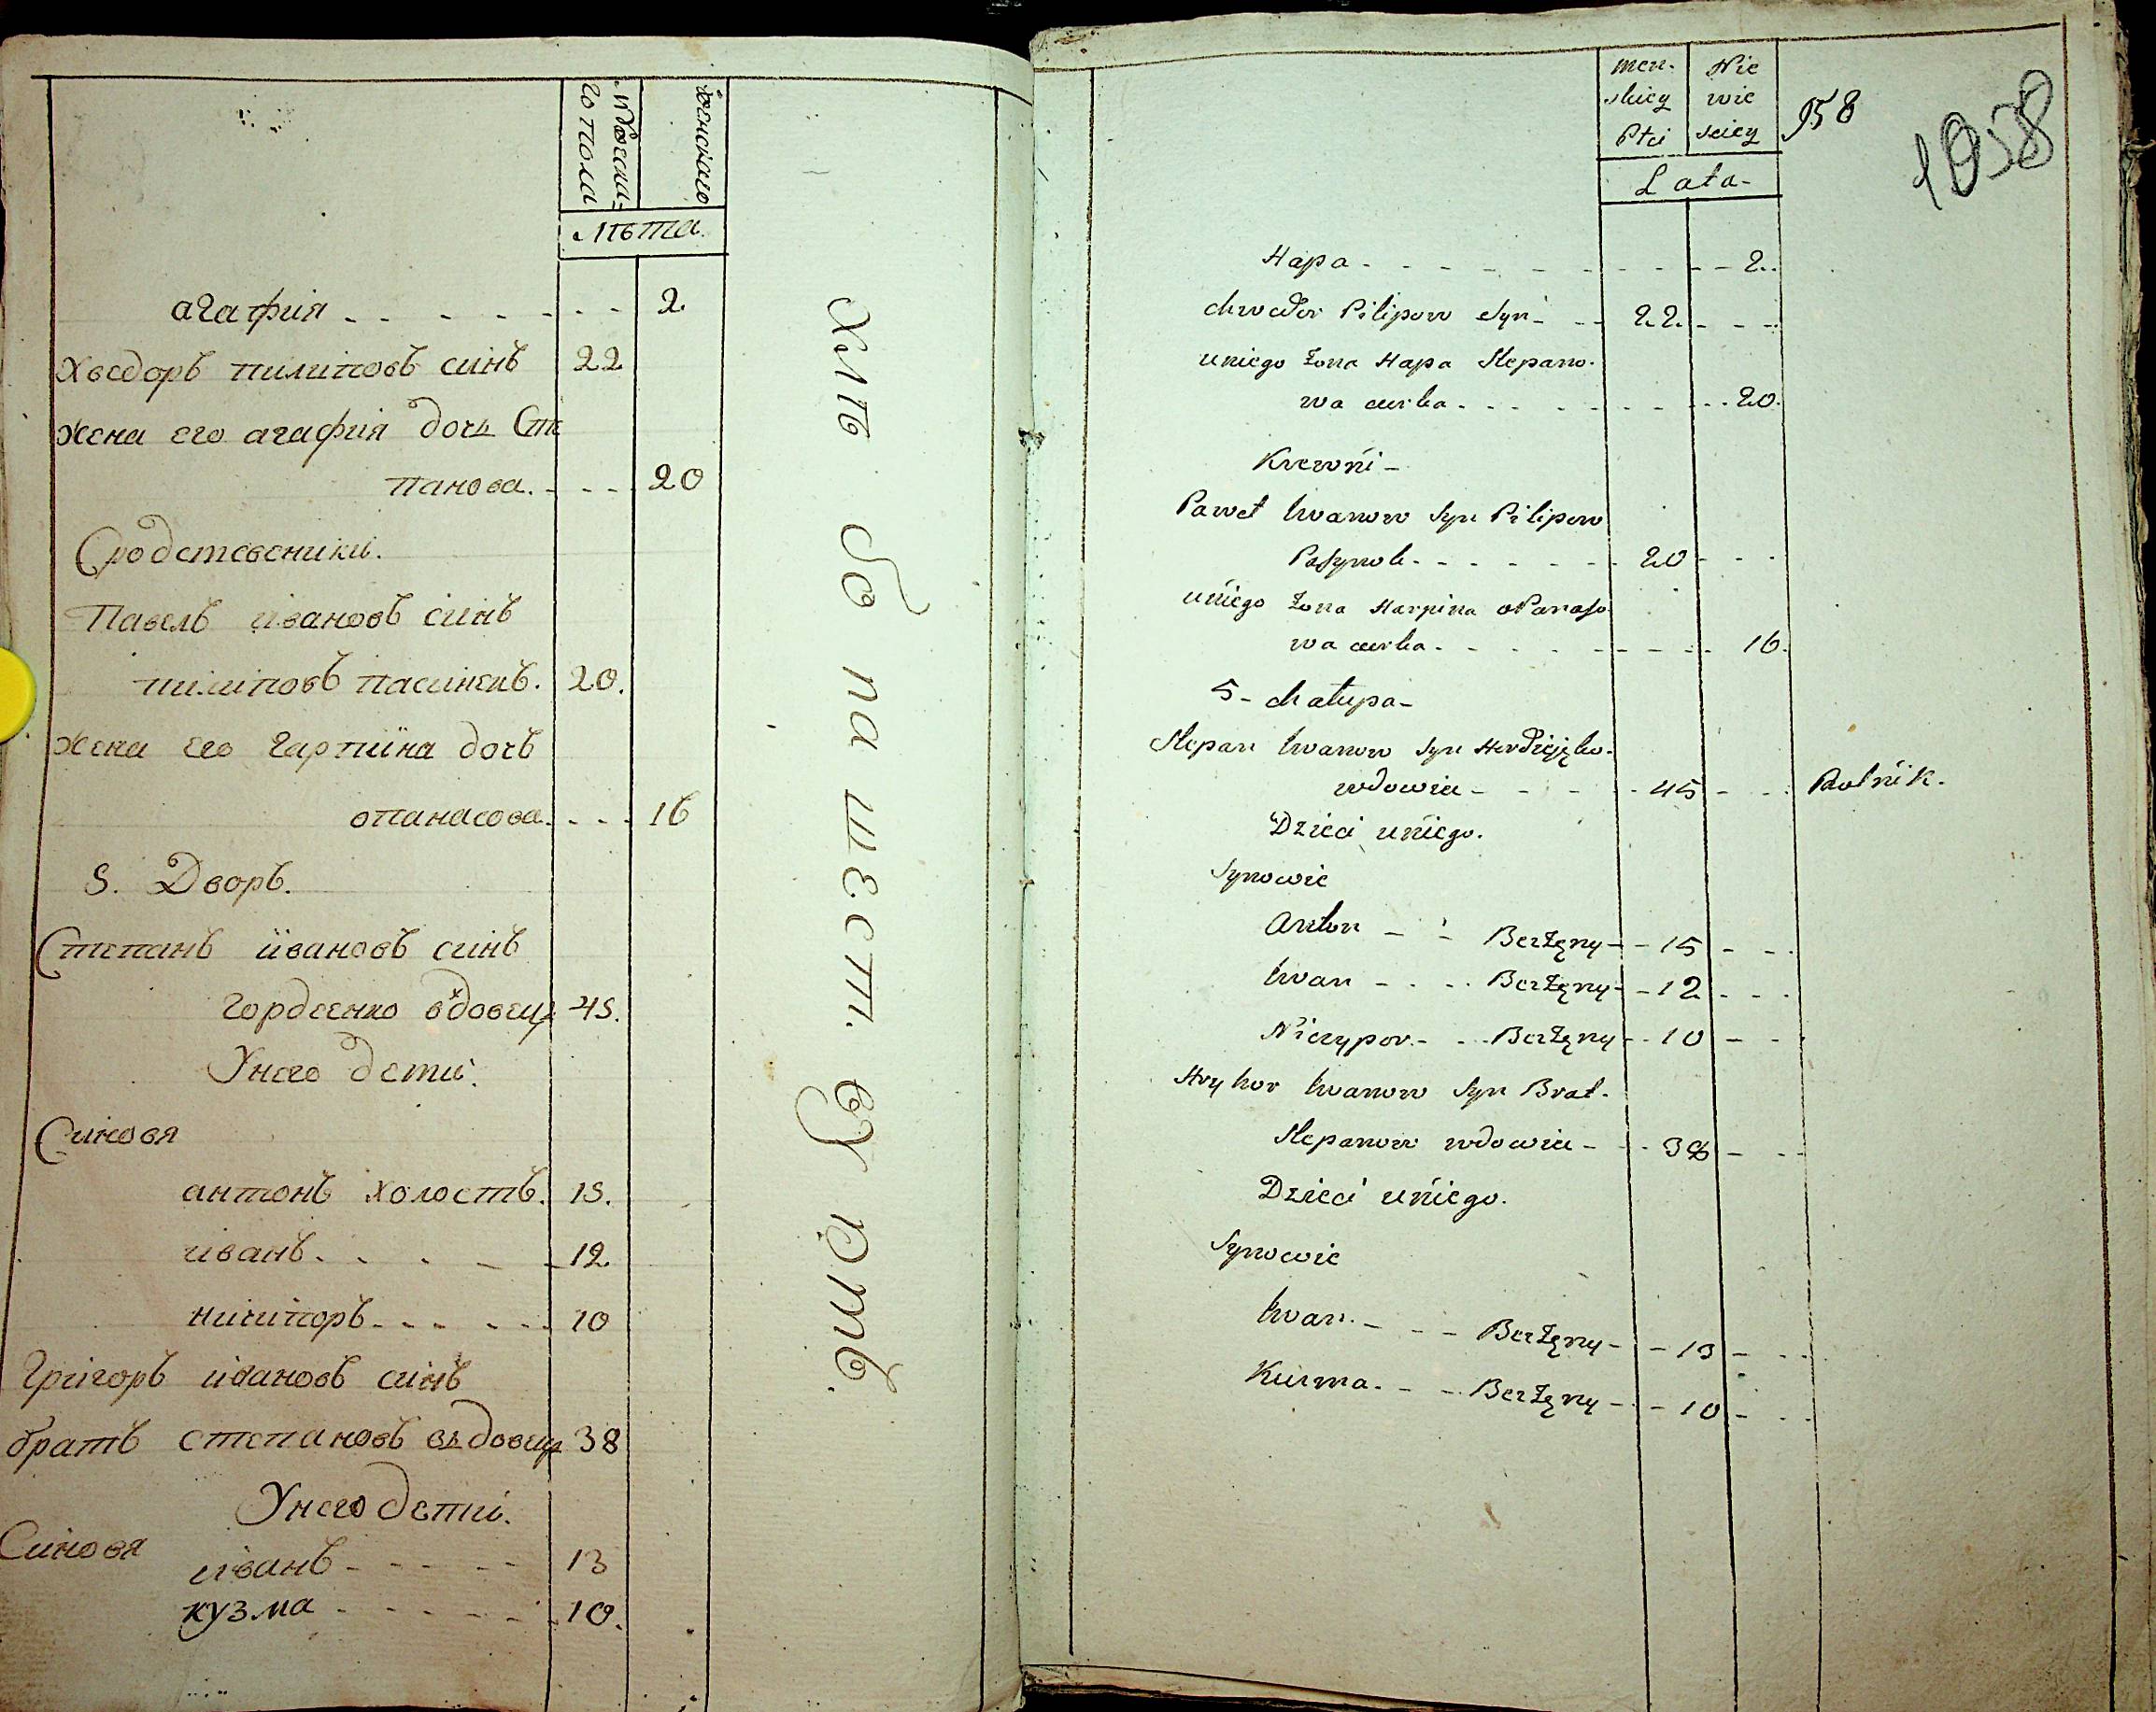 женского
лѣта.
агафия 2
Хведоръ пилиповъ синъ 22
жена его агафия дочь Сте
панова. 20
Сродственики.
Павелъ ивановъ синъ
пилиповъ пасинокъ. 20.
жена его Гарпина дочь
опанасова. 16
5. Дворъ.
Степанъ ивановъ синъ
гордеенко вдовець 45.
Унего дети.
Синовя
антонъ холостъ. 15.
иванъ. 12
ничипоръ 10
Григоръ ивановъ синъ
братъ степановъ вьдовець 38
Унего дети.
Синовя
иванъ 13
кузма 10.
на шест.
Nie
wie
sciey
Lata
958
1058
Hapa 2.
Chwedor Pilipow Syn 22
uniego Żona Hapa Stepano
wa curka 20.
Krewni
Paweł Iwanow Syn Pilipow
Pasynok 20
uniego Żona Harpina oPanaso
wa curka 16.
5 Chałupa
Stepan Iwanow Syn Hordiejęko
wdowiec 45 Rolnik.
Dzieci uniego.
Synowie
Anton Beżżęny 15
Iwan Beżżęny 12
Niczypor Beżżęny 10
Hryhor Iwanow Syn Brat
Stepanow wdowiec 38
Dzieci uniego.
Synowie
Iwan Beżżęny 13
Kuzma Beżżęny 10